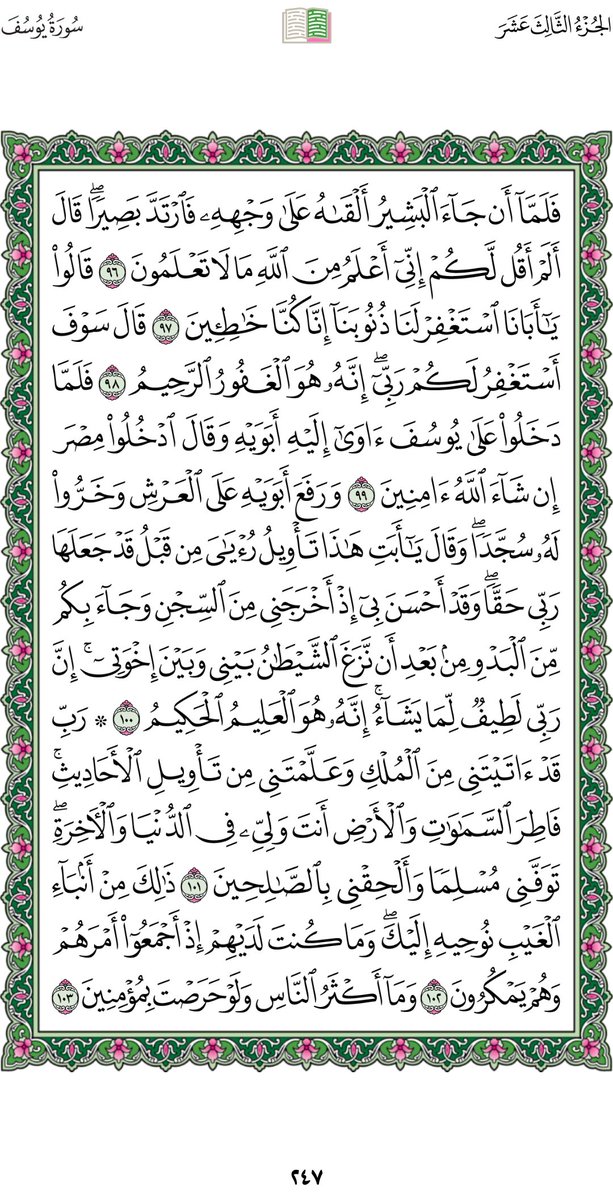 الجُزْءُ الثَّالِثَ عَشَرَ
سُورَةُ يُوسُفَ
فَلَمَّآ أَن جَآءَ ٱلْبَشِيرُ أَلْقَىٰهُ عَلَىٰ وَجْهِهِۦ فَٱرْتَدَّ بَصِيرًاۖ قَالَ
أَلَمْ أَقُل لَّكُمْ إِنِّىٓ أَعْلَمُ مِنَ ٱللَّهِ مَا لَا تَعْلَمُونَ ٩٦ قَالُوا۟
يَـٰٓأَبَانَا ٱسْتَغْفِرْ لَنَا ذُنُوبَنَآ إِنَّا كُنَّا خَـٰطِـِٔينَ ٩٧ قَالَ سَوْفَ
أَسْتَغْفِرُ لَكُمْ رَبِّىٓۖ إِنَّهُۥ هُوَ ٱلْغَفُورُ ٱلرَّحِيمُ ٩٨ فَلَمَّا
دَخَلُوا۟ عَلَىٰ يُوسُفَ ءَاوَىٰٓ إِلَيْهِ أَبَوَيْهِ وَقَالَ ٱدْخُلُوا۟ مِصْرَ
إِن شَآءَ ٱللَّهُ ءَامِنِينَ ٩٩ وَرَفَعَ أَبَوَيْهِ عَلَى ٱلْعَرْشِ وَخَرُّوا۟
لَهُۥ سُجَّدًاۖ وَقَالَ يَـٰٓأَبَتِ هَـٰذَا تَأْوِيلُ رُءْيَـٰىَ مِن قَبْلُ قَدْ جَعَلَهَا
رَبِّى حَقًّاۖ وَقَدْ أَحْسَنَ بِىٓ إِذْ أَخْرَجَنِى مِنَ ٱلسِّجْنِ وَجَآءَ بِكُم
مِّنَ ٱلْبَدْوِ مِنۢ بَعْدِ أَن نَّزَغَ ٱلشَّيْطَـٰنُ بَيْنِى وَبَيْنَ إِخْوَتِىٓۚ إِنَّ
رَبِّى لَطِيفٌ لِّمَا يَشَآءُۚ إِنَّهُۥ هُوَ ٱلْعَلِيمُ ٱلْحَكِيمُ ١٠٠ * رَبِّ
قَدْ ءَاتَيْتَنِى مِنَ ٱلْمُلْكِ وَعَلَّمْتَنِى مِن تَأْوِيلِ ٱلْأَحَادِيثِۚ
فَاطِرَ ٱلسَّمَـٰوَٰتِ وَٱلْأَرْضِ أَنتَ وَلِىِّۦ فِى ٱلدُّنْيَا وَٱلْـَٔاخِرَةِۖ
تَوَفَّنِى مُسْلِمًا وَأَلْحِقْنِى بِٱلصَّـٰلِحِينَ ١٠١ ذَٰلِكَ مِنْ أَنۢبَآءِ
ٱلْغَيْبِ نُوحِيهِ إِلَيْكَۖ وَمَا كُنتَ لَدَيْهِمْ إِذْ أَجْمَعُوٓا۟ أَمْرَهُمْ
وَهُمْ يَمْكُرُونَ ١٠٢ وَمَآ أَكْثَرُ ٱلنَّاسِ وَلَوْ حَرَصْتَ بِمُؤْمِنِينَ ١٠٣
٢٤٧